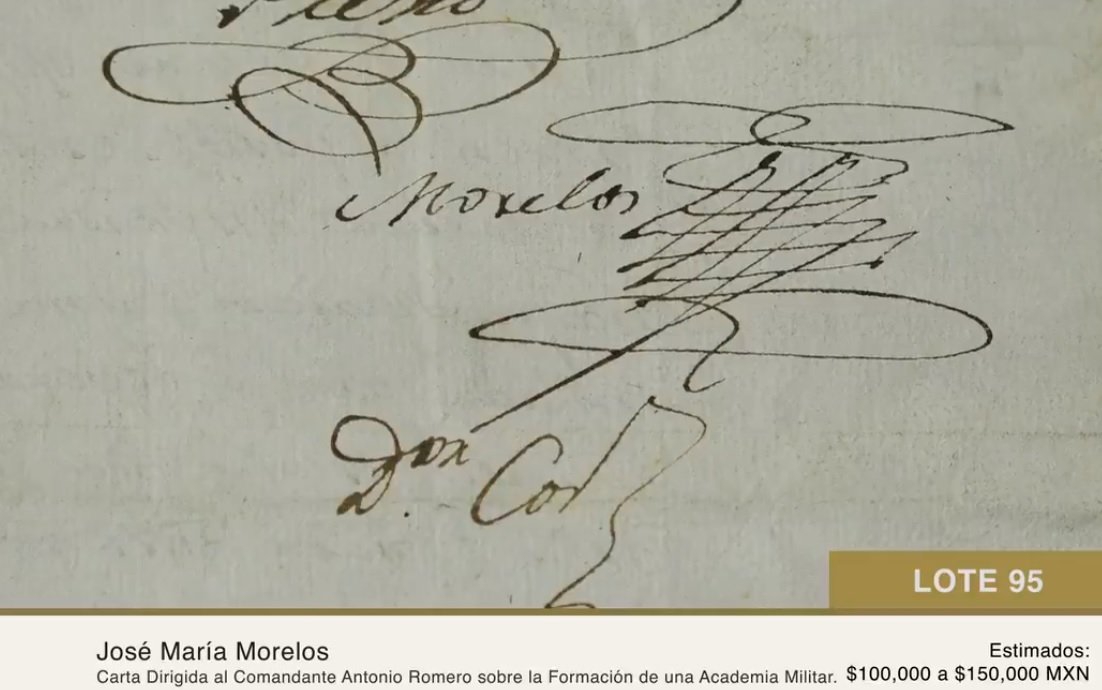 Morelos
D.
LOTE 95
José María Morelos
Carta Dirigida al Comandante Antonio Romero sobre la Formación de una Academia Militar.
Estimados:
$100,000 a $150,000 MXN